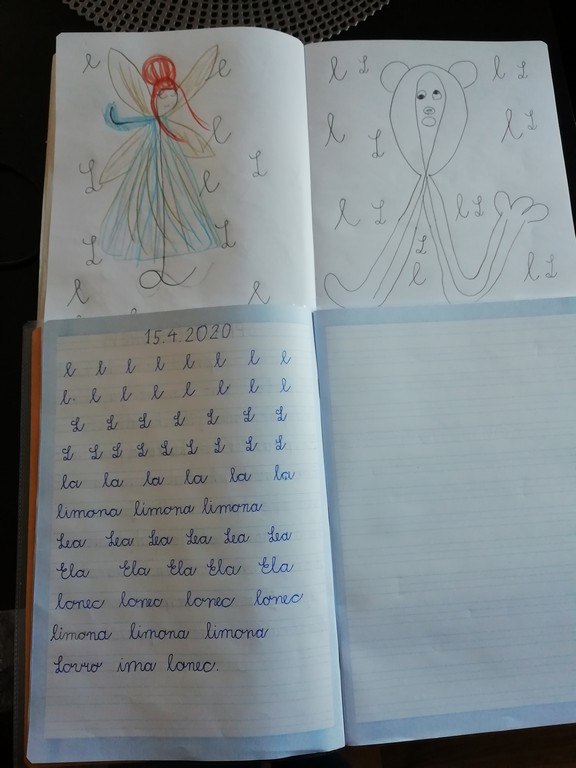 l l
l
L l L
L L
l l
l L l L
l L l L
l L l L
L
l l L
15.4.2020
l l l l l l l l
l l l l l l l l
L L L L L L L
L L L L L L L L L
la la la la la la
limona limona limona
Lea Lea Lea Lea Lea Lea
Ela Ela Ela Ela Ela
lonec lonec lonec lonec
limona limona limona
Lovro ima lonec.